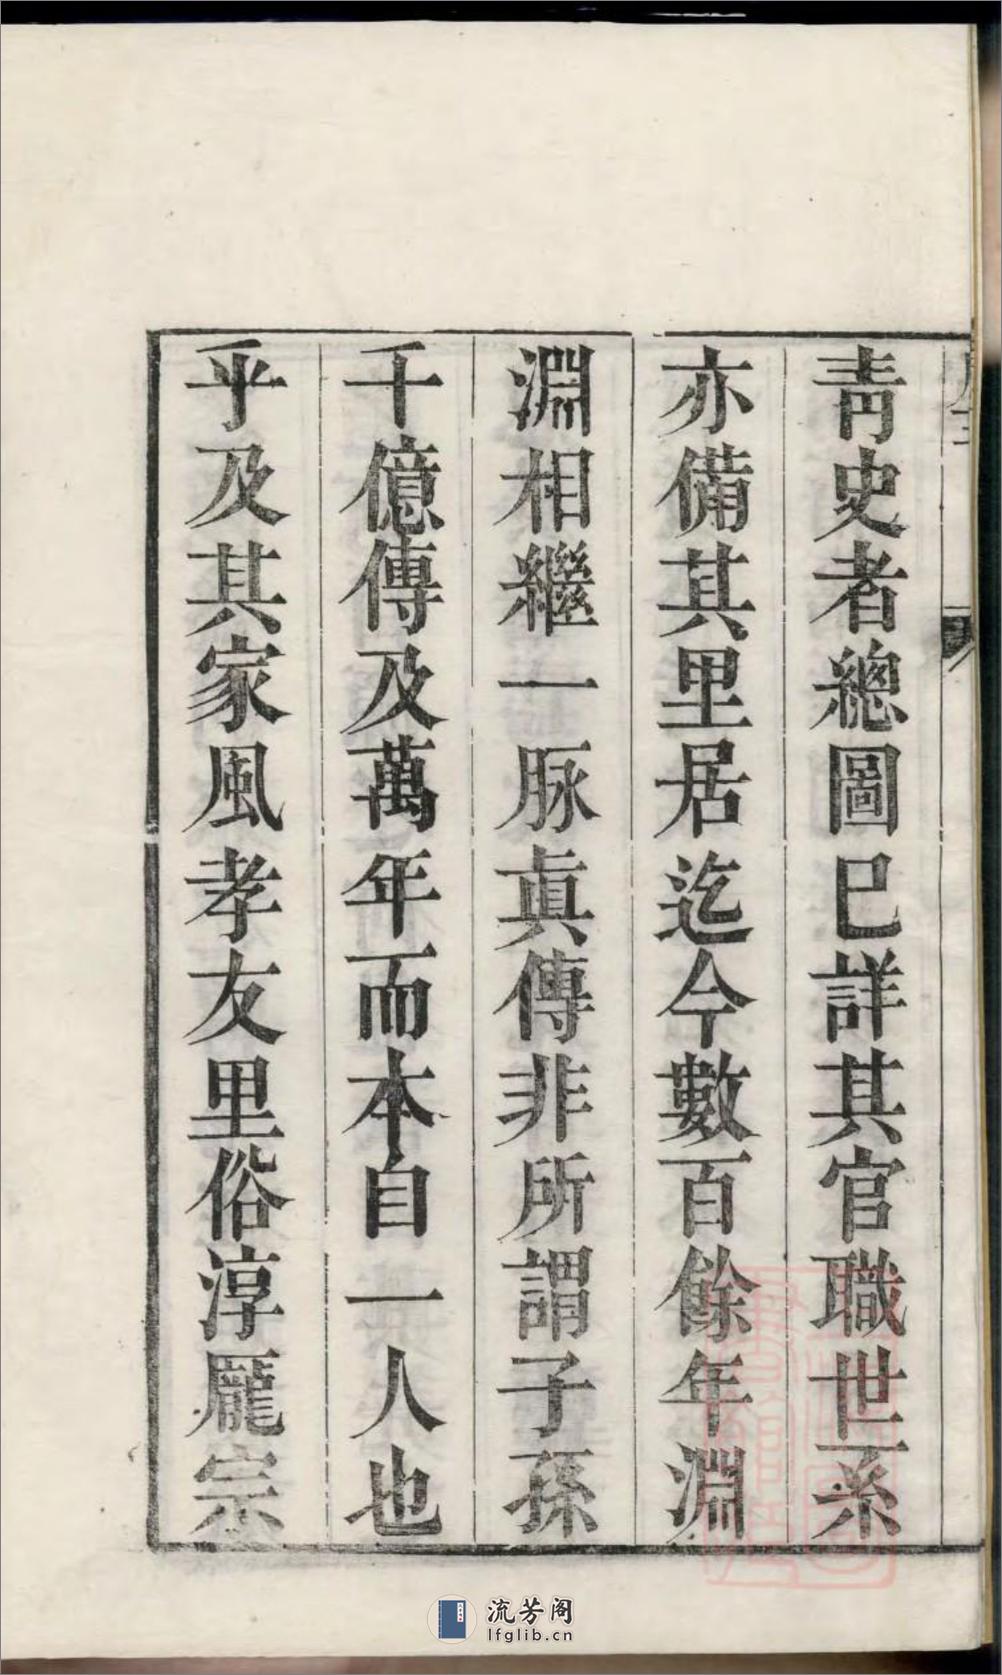 青史者總圖已詳其官職世系
亦備其里居迄今數百餘年淵
淵相繼一脉眞傳非所謂子孫
千億傳及萬年而本自一人也
乎及其家風孝友里俗淳龎宗
流芳阁
lfglib.cn